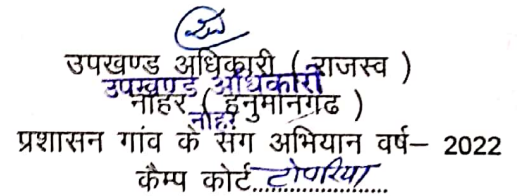 उपखण्ड अधिकारी ( राजस्व )
उपखण्ड अधिकारी
नोहर ( हनुमानगढ )
नोहर
प्रशासन गांव के संग अभियान वर्ष– 2022
कैम्प कोर्ट टोपरिया